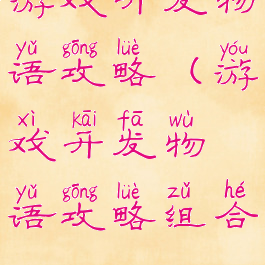 游戏开发物
yǔ gōng lüè yóu
语攻略（游
xì kāi fā wù
戏开发物
yǔ gōng lüè zǔ hé
语攻略组合